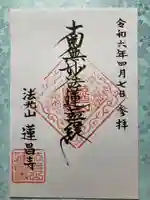 令和六年四月七日参拝
南無妙法蓮華経
法光山
蓮昌寺